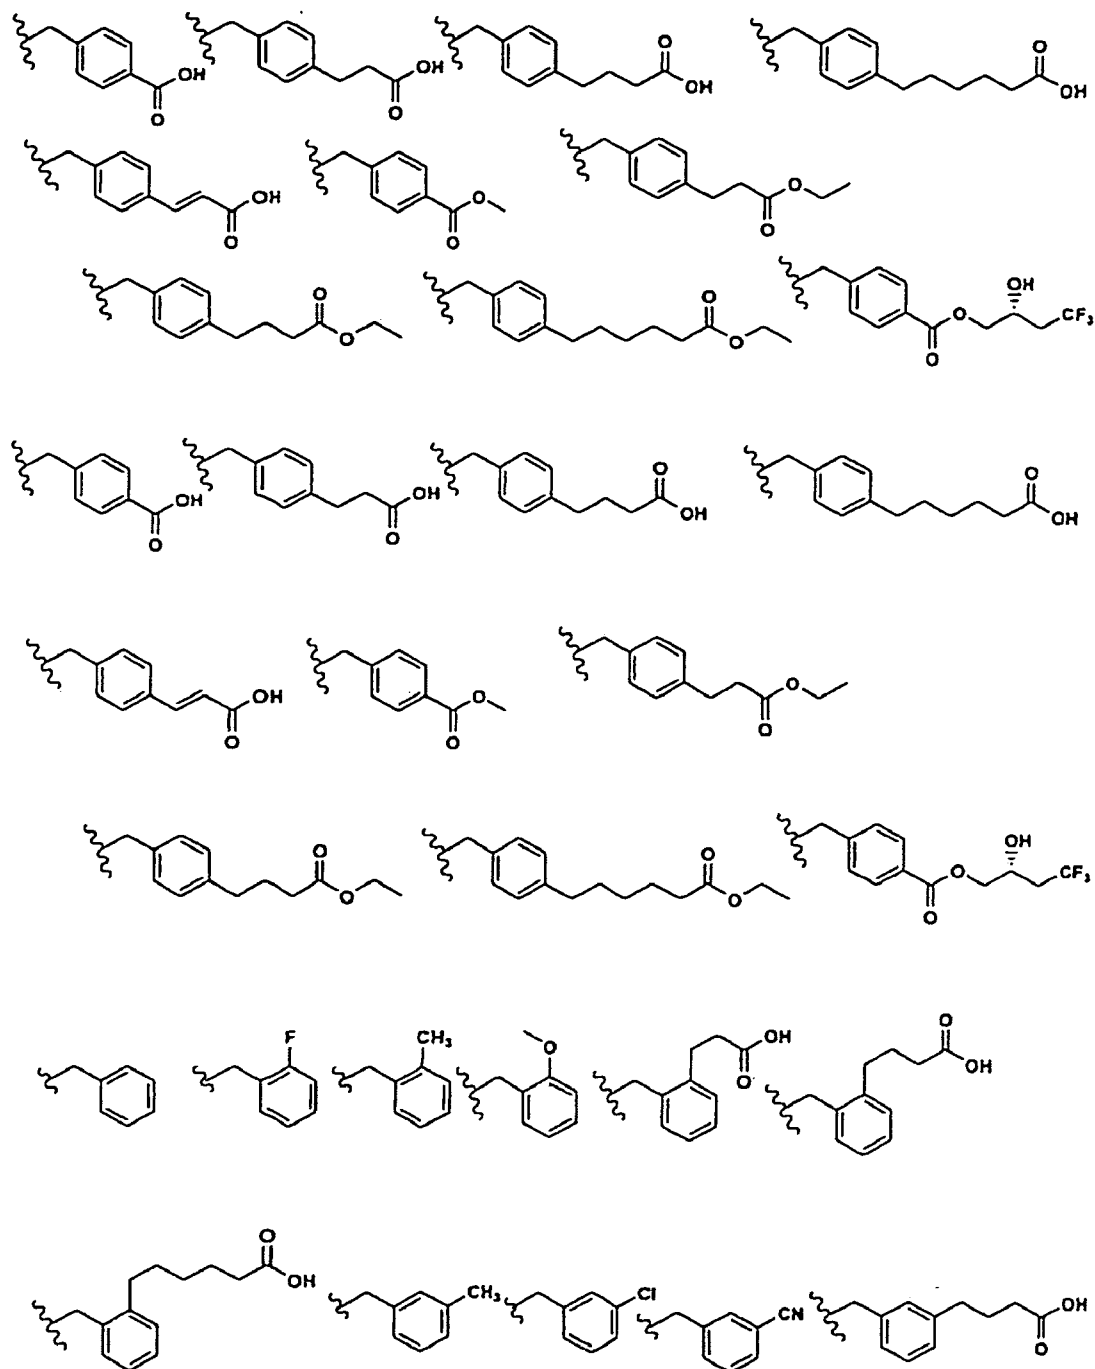 OH OH O OH O OH
O O
OH O O
O O O
O O OH
O O O CF₃
O
OH OH O OH O OH
O O
OH O O
O O O
O O OH
O O O CF₃
O
F CH₃ O OH O OH
O
O OH CH₃ Cl CN OH
O